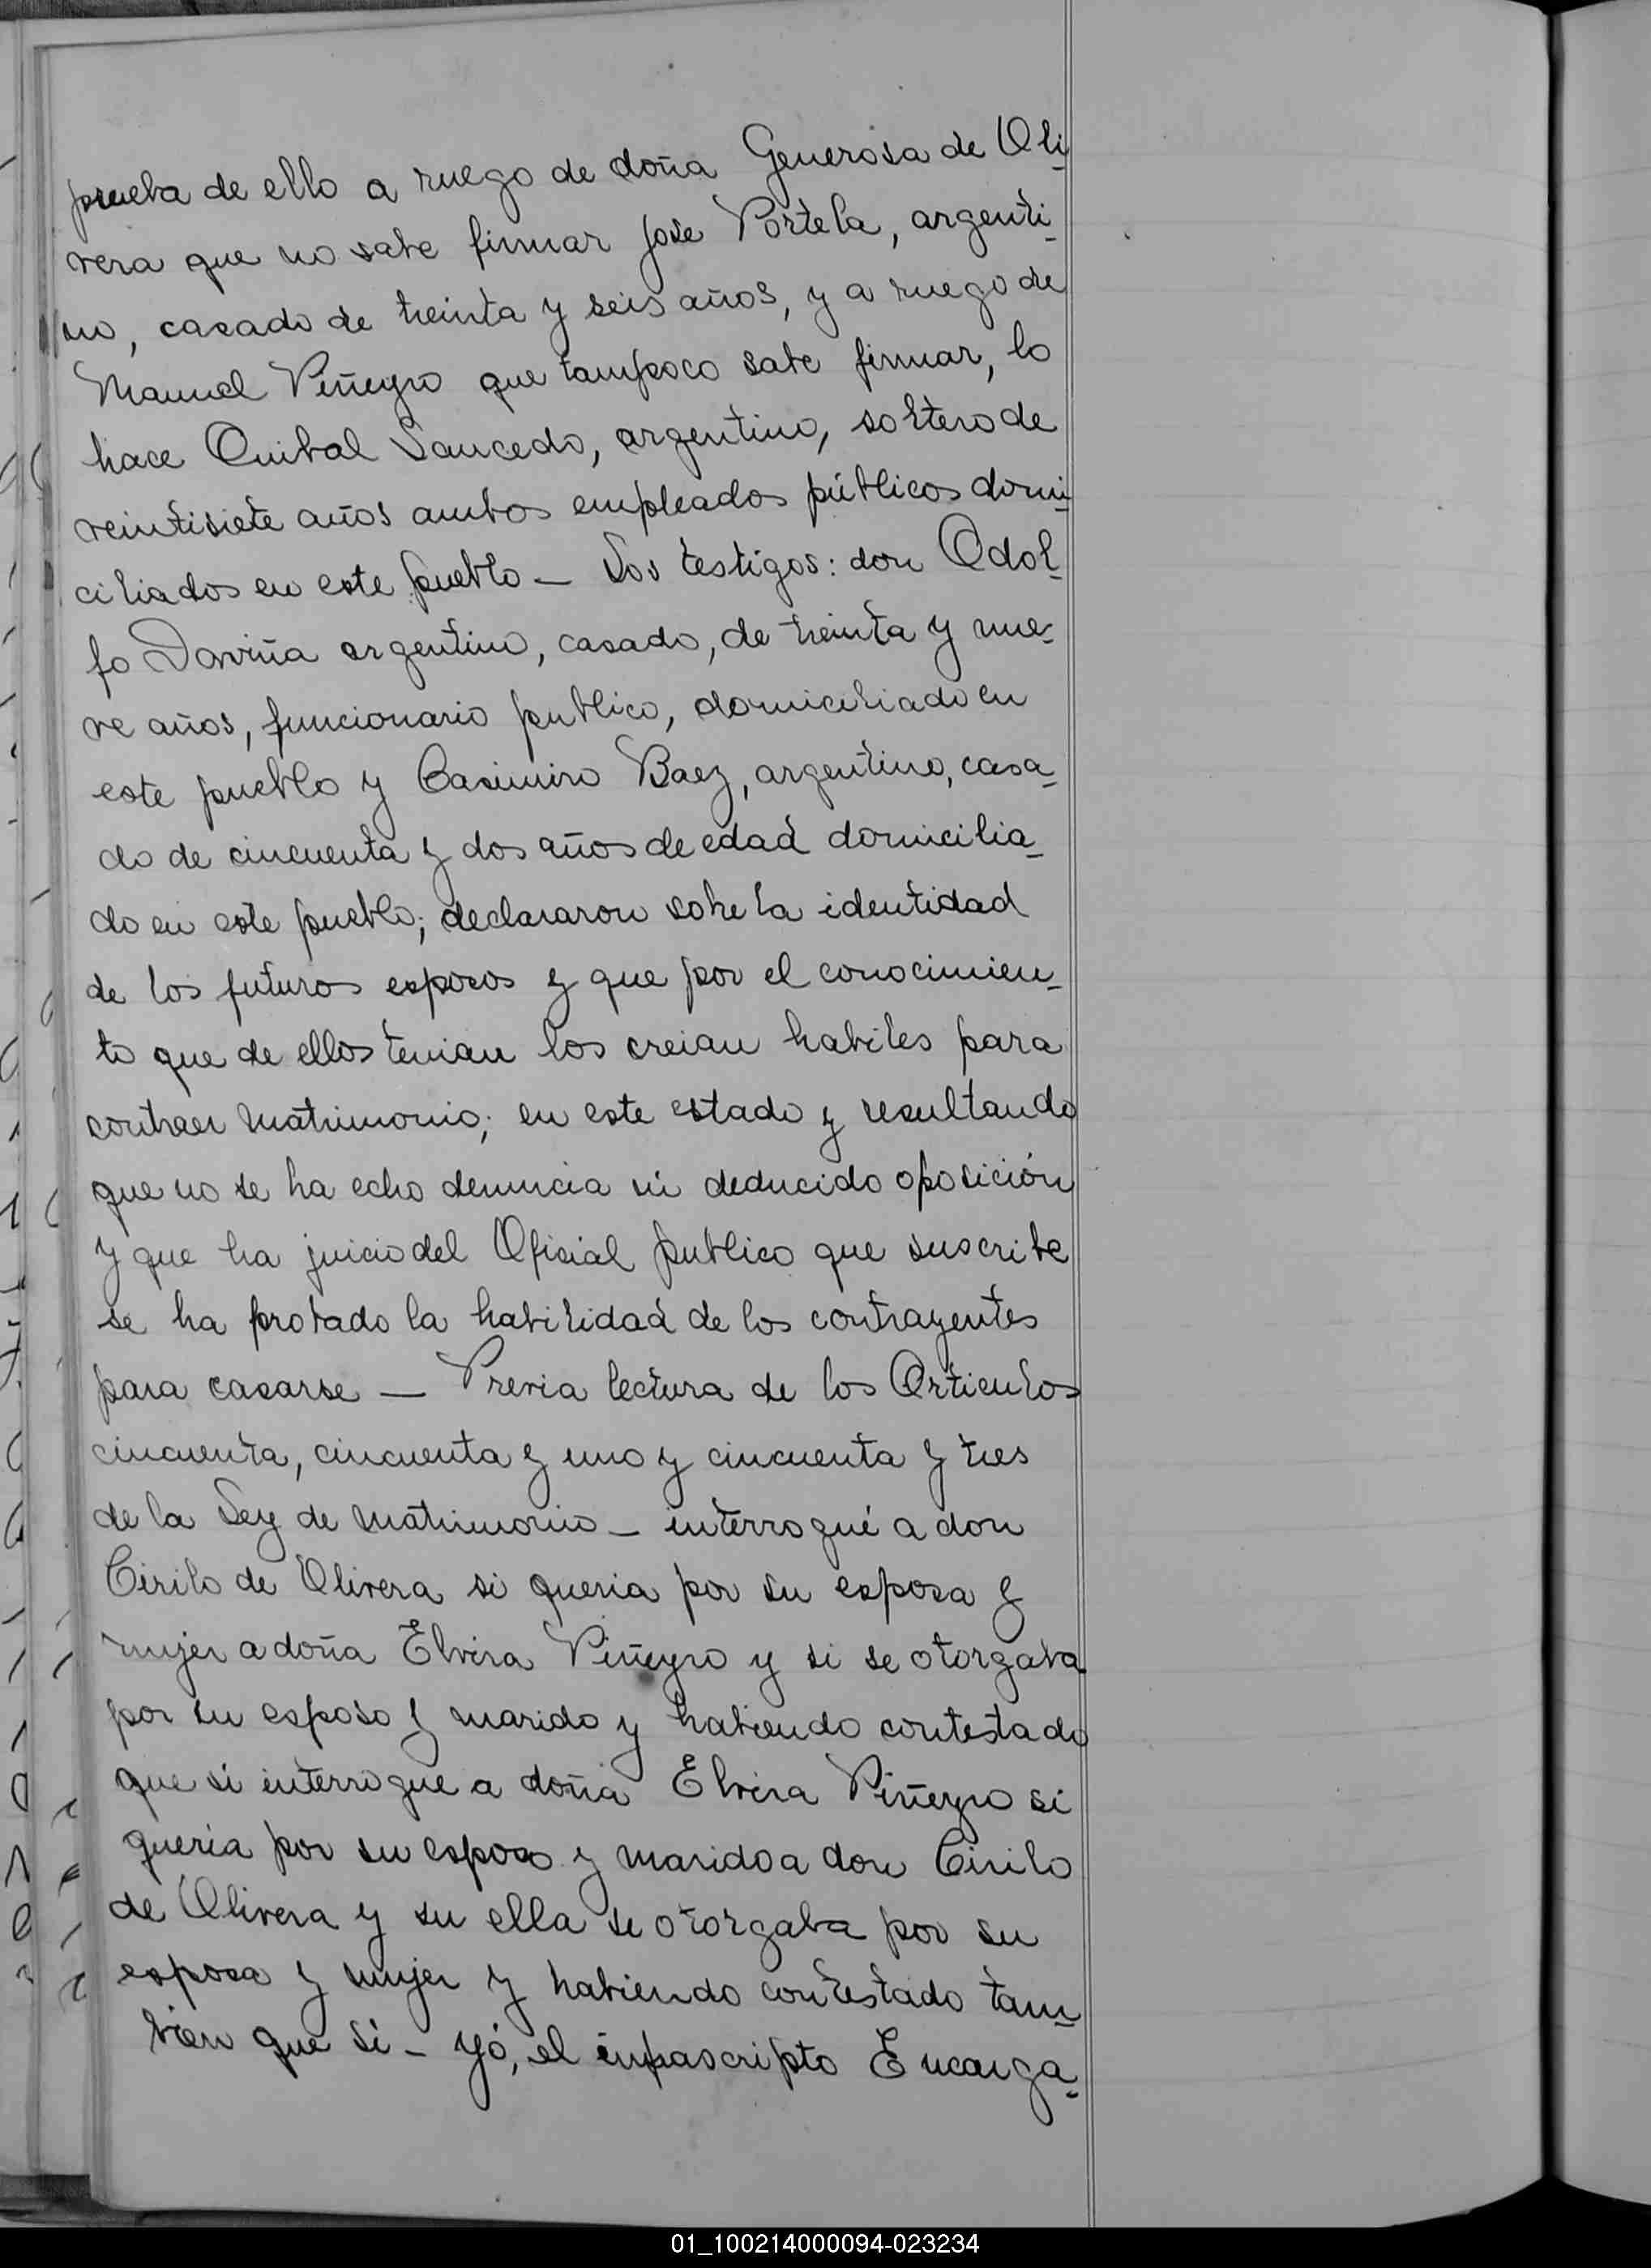 prueba de ello a ruego de doña Generosa de Oli-
vera que no sabe firmar Jose Portela, argenti-
no, casado de treinta y seis años, y a ruego de
Manuel Piñeyro que tampoco sabe firmar, lo
hace Anibal Saucedo, argentino, soltero de
veintisiete años ambos empleados públicos domi-
ciliados en este pueblo - Los testigos: don Adol-
fo Daviña argentino, casado, de treinta y nue-
ve años, funcionario publico, domiciliado en
este pueblo y Casimiro Baez, argentino, casa-
do de cincuenta y dos años de edad domicilia-
do en este pueblo; declararon sobre la identidad
de los futuros esposos y que por el conocimien-
to que de ellos tenian los creian habiles para
contraer matrimonio; en este estado y resultando
que no se ha echo denuncia ni deducido oposición
y que ha juicio del Oficial publico que suscribe
se ha probado la habilidad de los contrayentes
para casarse - Previa lectura de los Articulos
cincuenta, cincuenta y uno y cincuenta y tres
de la Ley de matrimonio - interrogué a don
Cirilo de Olivera si queria por su esposa y
mujer a doña Elvira Piñeyro y si se otorgaba
por su esposo y marido y habiendo contestado
que si interrogue a doña Elvira Piñeyro si
queria por su esposo y marido a don Cirilo
de Olivera y su ella se otorgaba por su
esposa y mujer y habiendo contestado tam-
bien que si - Yó, el inpascripto Encarga-
01_100214000094-023234